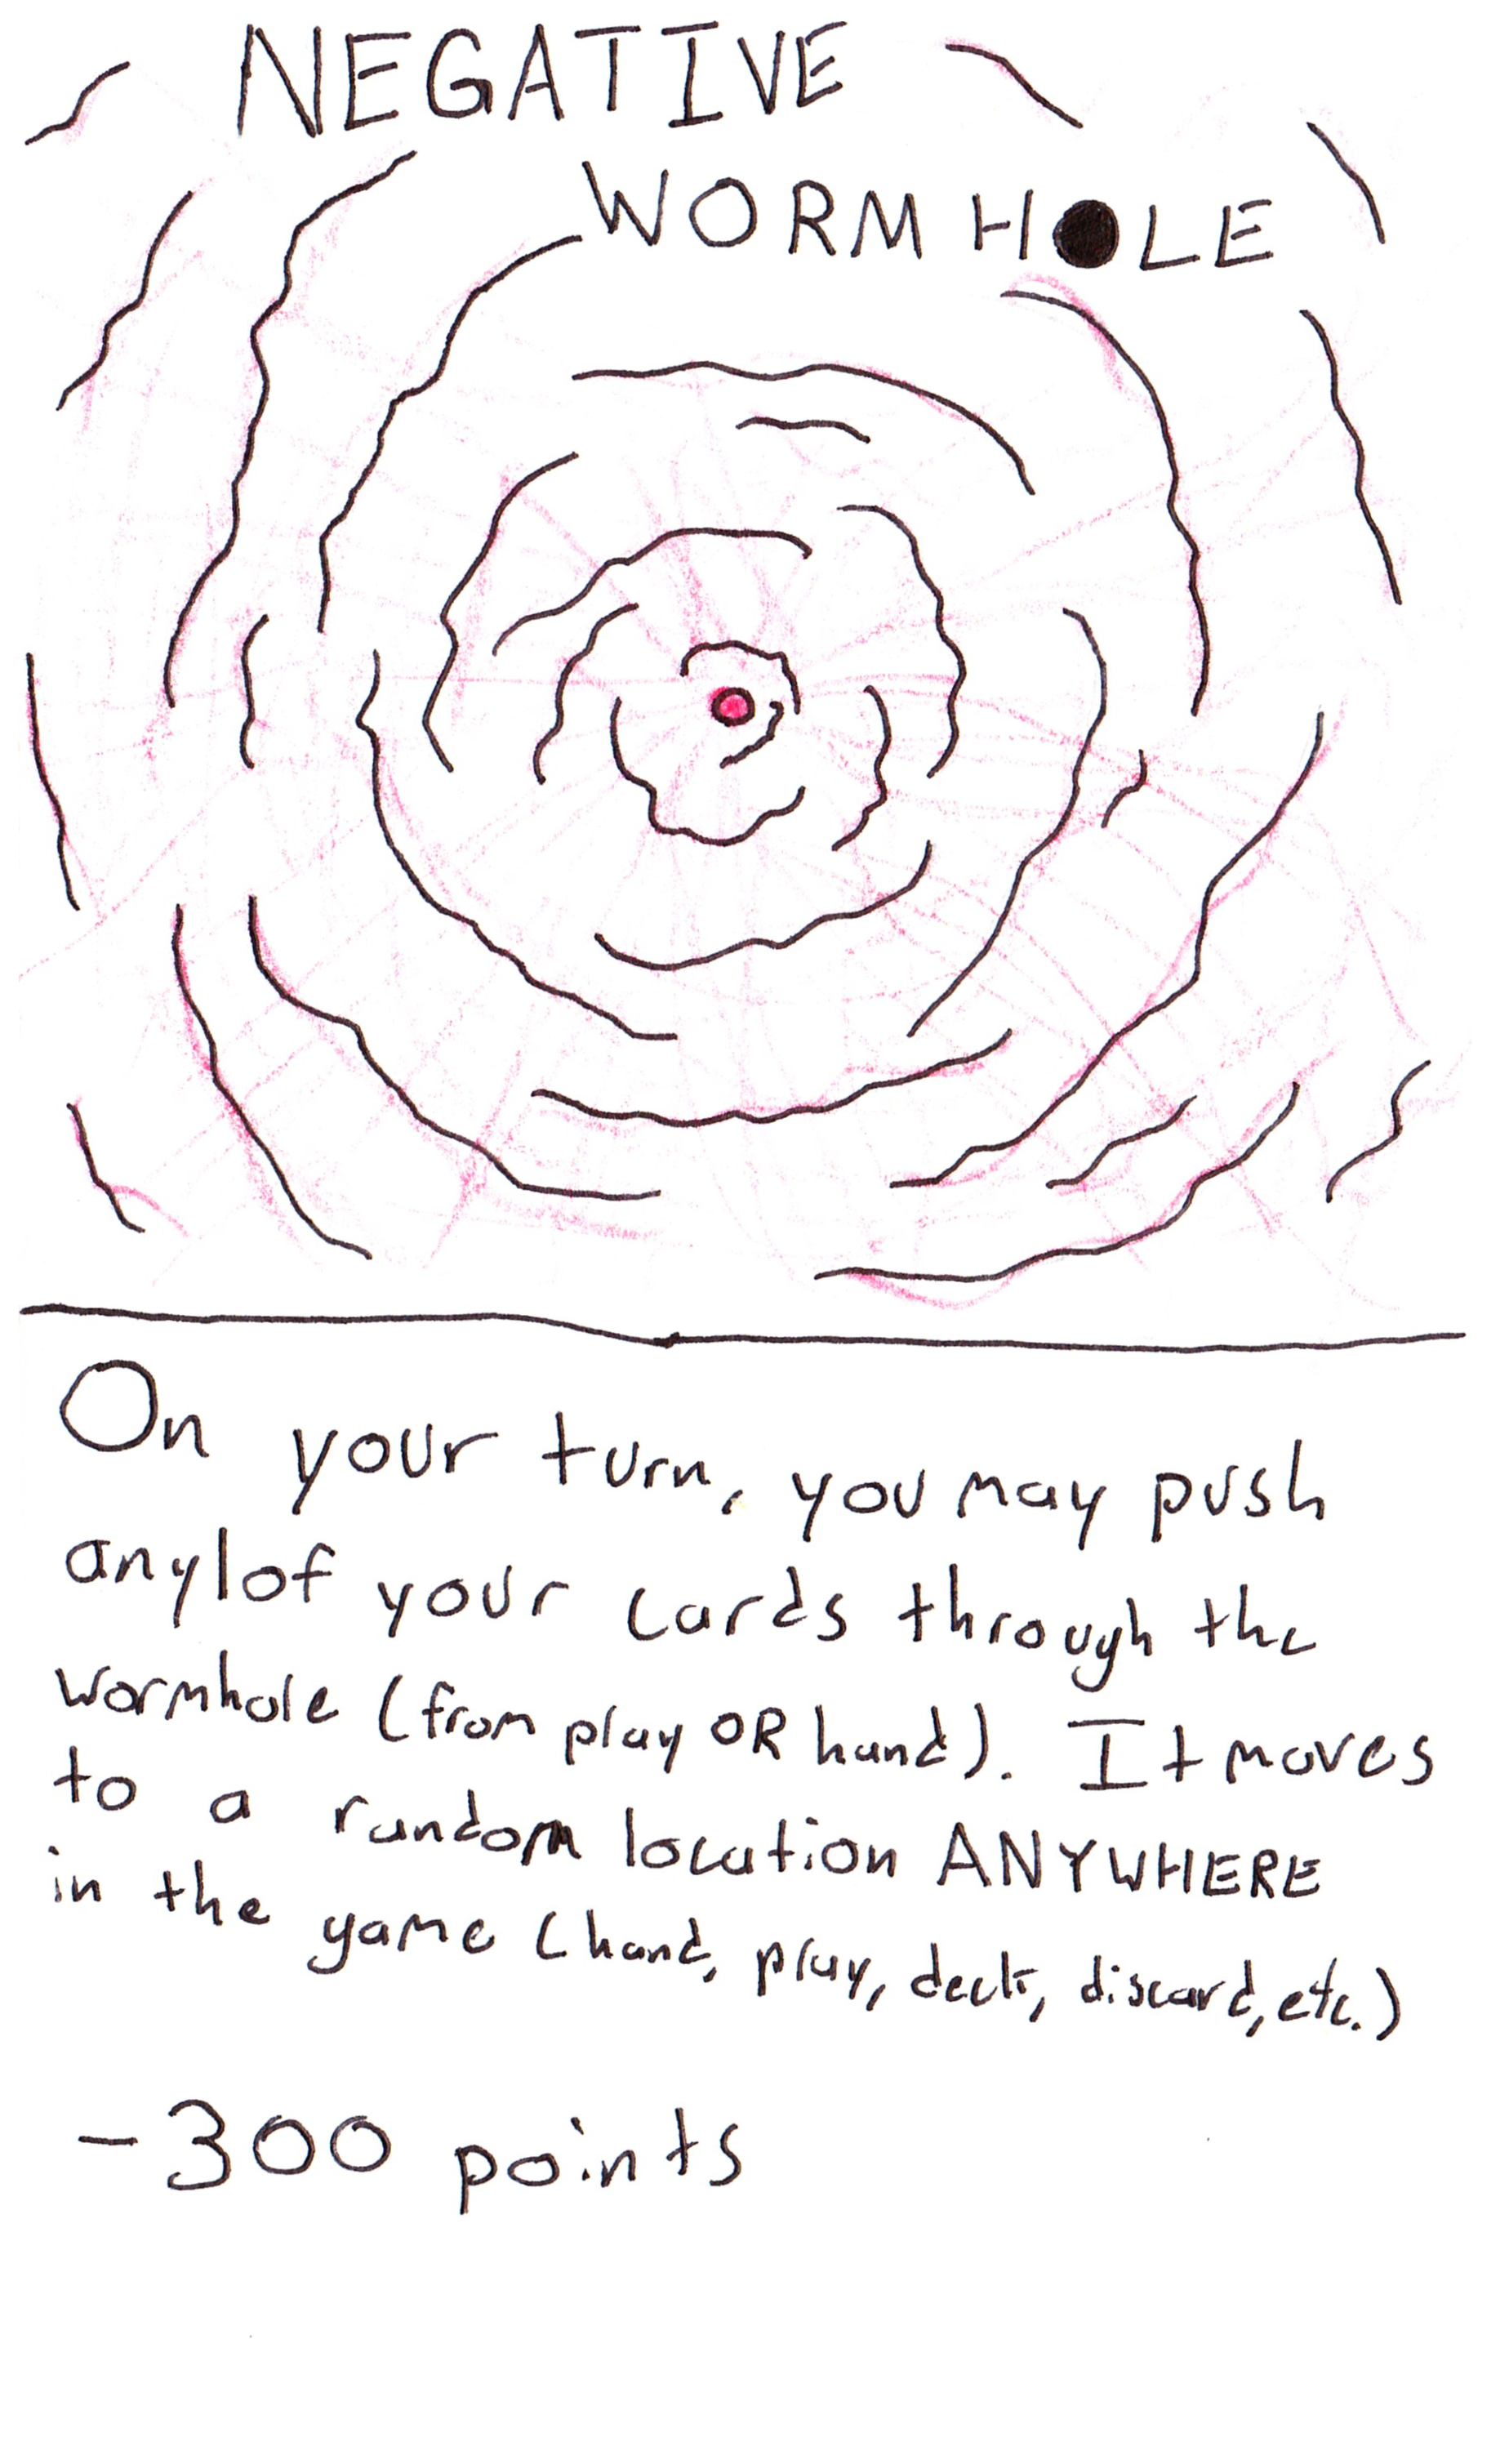 NEGATIVE
WORMHOLE
On your turn, you may push
any 1 of your cards through the
wormhole (from play OR hand). It moves
to a random location ANYWHERE
in the game (hand, play, deck, discard, etc.)
-300 points